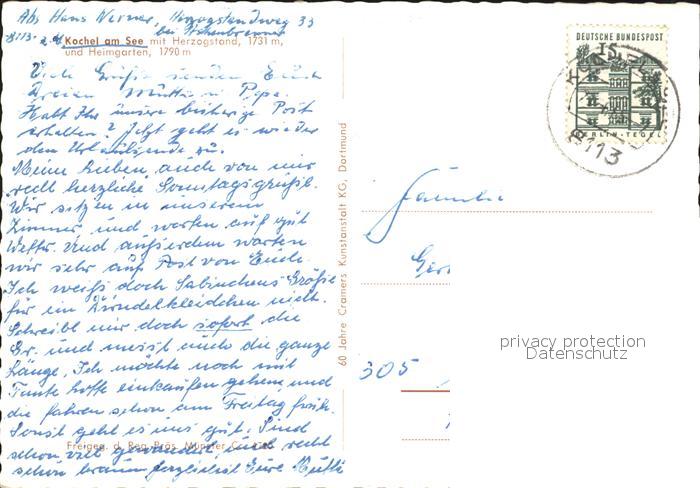 Abs. Hans Werner, Herzogstandweg 33
8113 bei
Kochel am See mit Herzogstand, 1731 m,
und Heimgarten, 1790 m
Viele Grüße senden Euch
Dreien Mutti u. Papa.
Habt Ihr unsere bisherige Post
erhalten? Jetzt geht es wieder
dem Urlaubsende zu.
Meine Lieben, auch von mir
recht herzliche Sonntagsgrüße.
Wir sitzen in unserem
Zimmer und warten auf gut
Wetter. Und außerdem warten
wir sehr auf Post von Euch.
Ich weiß doch Sabinchens Größe
für ein Dirndelkleidchen nicht.
Schreibt mir doch sofort die
Gr. und messt auch die ganze
Länge. Ich möchte noch mit
Tante einkaufen gehen und
die fahren schon am Freitag früh.
Sonst geht es uns gut. Sind
schon viel gewandert, und recht
schön braun Eure Mutti
Freigeg. d. Reg. Präs. Münster
60 Jahre Cramers Kunstanstalt KG, Dortmund
DEUTSCHE BUNDESPOST
15
BERLIN-TEGEL
8113
Familie
305
privacy protection
Datenschutz